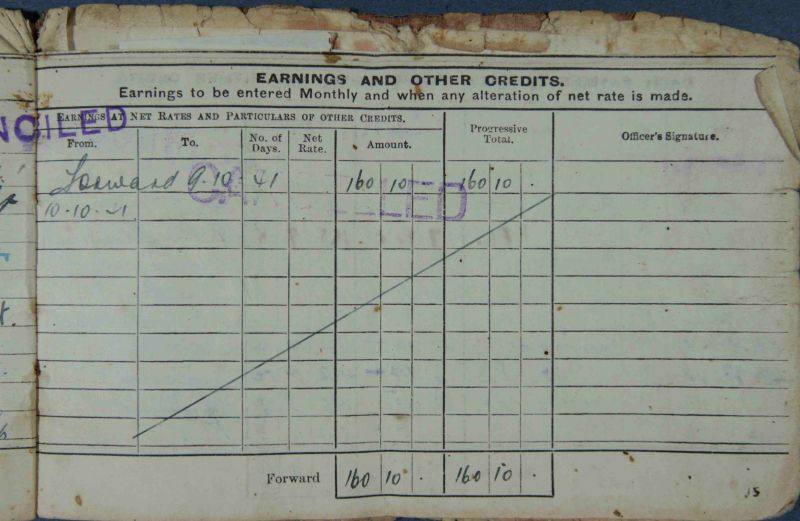 EARNINGS AND OTHER CREDITS.
Earnings to be entered Monthly and when any alteration of net rate is made.
NCILED
EARNINGS AT NET RATES AND PARTICULARS OF OTHER CREDITS.
From. To. No. of Days. Net Rate. Amount. Progressive Total. Officer's Signature.
Forward 9.10 41 160 10 . 160 10 .
CANCELLED
10-10-41
Forward 160 10 . 160 10 .
15